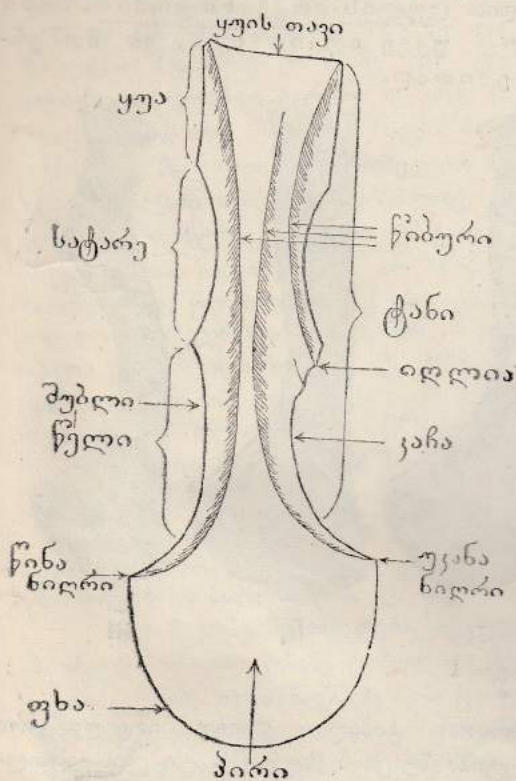 ყუის თავი
ყუა
სატარე
წიბური
ტანი
შუბლი
იღლია
წელი
კაჩა
წინა
ნიღრი
უკანა
ნიღრი
ფხა
პირი